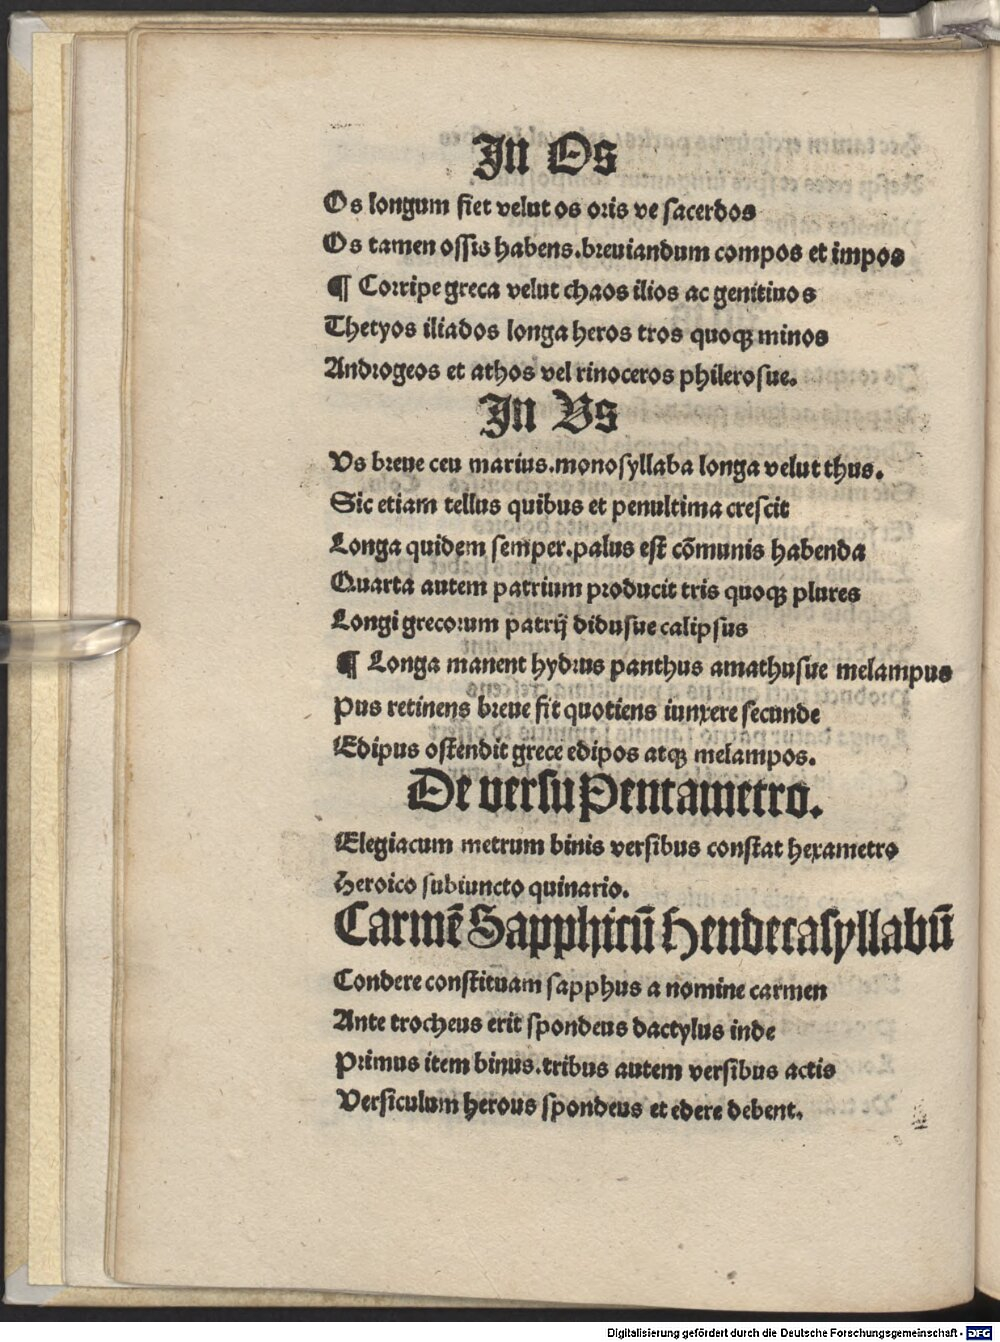 In Os
Os longum fiet velut os oris ve sacerdos
Os tamen ossis habens.breuiandum compos et impos
¶ Corripe greca velut chaos ilios ac genitiuos
Thetyos iliados longa heros tros quoqꝫ minos
Androgeos et athos vel rinoceros philerosue.
In Vs
Vs breue ceu marius.monosyllaba longa velut thus.
Sic etiam tellus quibus et penultima crescit
Longa quidem semper.palus est cõmunis habenda
Quarta autem patrium producit tris quoqꝫ plures
Longi grecorum patrij didusue calipsus
¶ Longa manent hydrus panthus amathusue melampus
Pus retinens breue fit quotiens iunxere secunde
Edipus ostendit grece edipos atqꝫ melampos.
De versu Pentametro.
Elegiacum metrum binis versibus constat hexametro
Heroico subiuncto quinario.
Carmẽ Sapphicũ Hendecasyllabũ
Condere constituam sapphus a nomine carmen
Ante trocheus erit spondeus dactylus inde
Primus item binus.tribus autem versibus actis
Versiculum herous spondeus et edere debent.
Digitalisierung gefördert durch die Deutsche Forschungsgemeinschaft - DFG